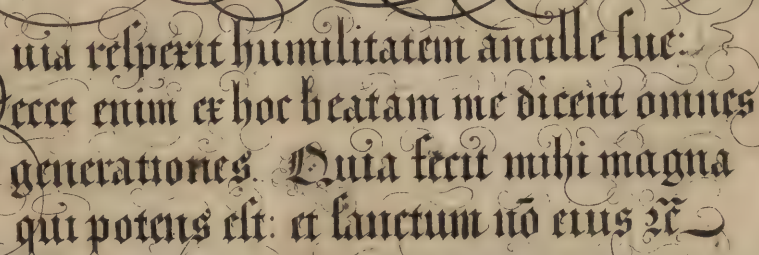 uia respexit humilitatem ancille sue:
ecce enim ex hoc beatam me dicent omnes
generationes. Quia fecit mihi magna
qui potens est: et sanctum nō eius ⁊c̄